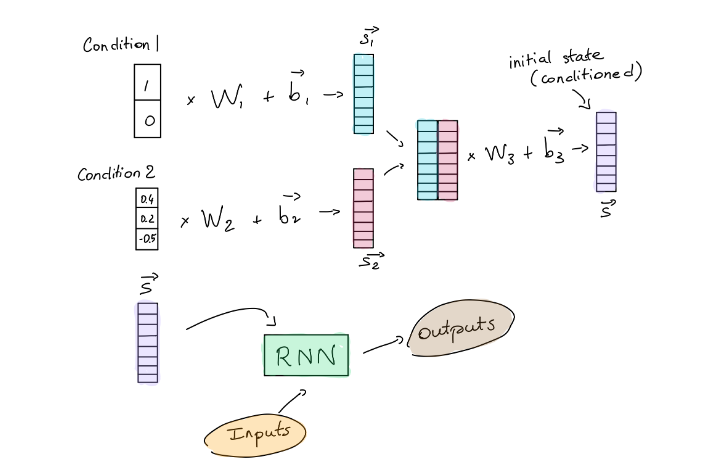 Condition 1
1
0
x W₁ + b₁ →
s₁
Condition 2
0.4
0.2
-0.5
x W₂ + b₂ →
s₂
x W₃ + b₃ →
initial state
(conditioned)
s
s
RNN
Outputs
Inputs